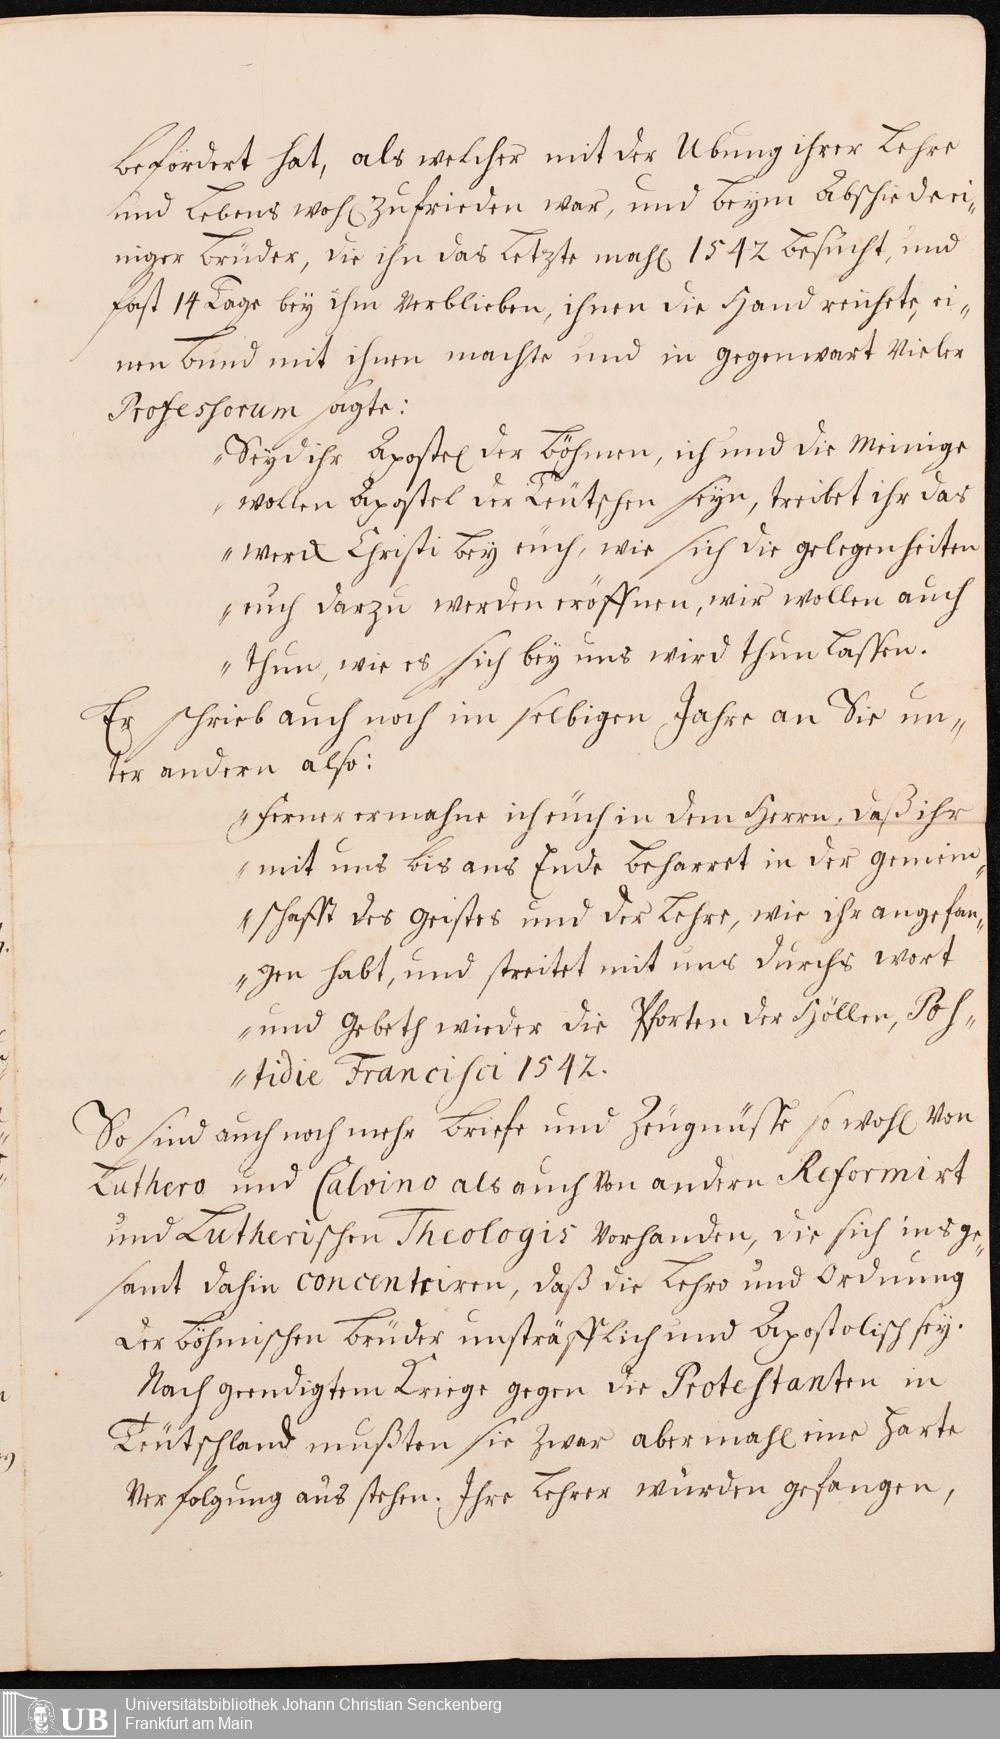 befördert hat, als welcher mit der Übung ihrer Lehre
und Lebens wohl zufrieden war, und beym Abschied ei„
niger Brüder, die ihn das Letzte mahl 1542 besucht, und
fast 14 Tage bey ihm verblieben, ihnen die Hand reichete, ei„
nen Bund mit ihnen machte und in gegenwart vieler
Professorum sagte:
„Seyd ihr Apostel der Böhmen, ich und die Meinige
„wollen Apostel der Teütschen seyn, treibet ihr das
„werck Christi bey euch, wie sich die gelegenheiten
„euch darzu werden eröffnen, wir wollen auch
„thun, wie es sich bey uns wird thun Lassen.
Er schrieb auch noch im selbigen Jahre an Sie un„
ter andern also:
„ferner ermahne ich euch in dem Herrn, daß ihr
„mit uns bis ans Ende beharret in der gemein„
„schafft des Geistes und der Lehre, wie ihr angefan„
„gen habt, und streitet mit uns durchs wort
„und Gebeth wieder die Pforten der Höllen, Pos„
„tidie Francisci 1542.
So sind auch noch mehr Briefe und Zeügnüsse so wohl von
Luthero und Calvino als auch von andern Reformirt
und Lutherischen Theologis vorhanden, die sich ins ge„
samt dahin concentriren, daß die Lehre und Ordnung
der Böhmischen Brüder unsträfflich und Apostolisch sey.
Nach geendigtem Kriege gegen die Protestanten in
Teütschland mußten sie zwar abermahl eine harte
Verfolgung aus stehen. Ihre Lehrer wurden gefangen,
UB
Universitätsbibliothek Johann Christian Senckenberg
Frankfurt am Main